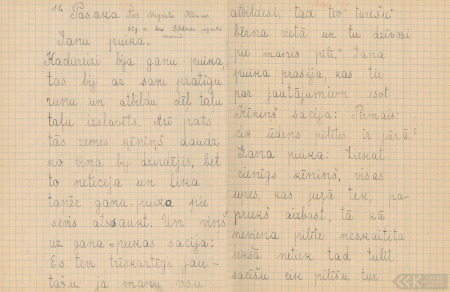 11. Pasaka
Ganu puika.
Kadureizi bija ganu puika,
tas bij ar savu prātīgu
runu un atbildu dēļ tālu
tālu izslavēts. Arē pats
tās zemes ķēniņš daudz
no viņa bij dzirdējis, bet
to neticēja un lika
tanēc ganu-puika pie
sevis atsaukt. Un viņš
uz ganu-puikas sacīja:
Es tevi trīskārtīgi jau-
tāšu ja manu visu
atbildēsi, tad tev turēšu
bērna vietā un tu dzīvosi
pie manis pilī." Gana
puika prasīja, kas tie
par jautājumiem esot
Ķēniņš sacīja: Pirmais:
cik ūdens pilītes ir jūrā?
Gana puika: Lieciet
cienīgs ķēniņš, visas
upes, kas jūrā tek, pa-
priekš aizbāst, tā kā
neviena pilīte neskaitīta
iekšā netiek tad tulīt
sacīšu cik pilīšu tur